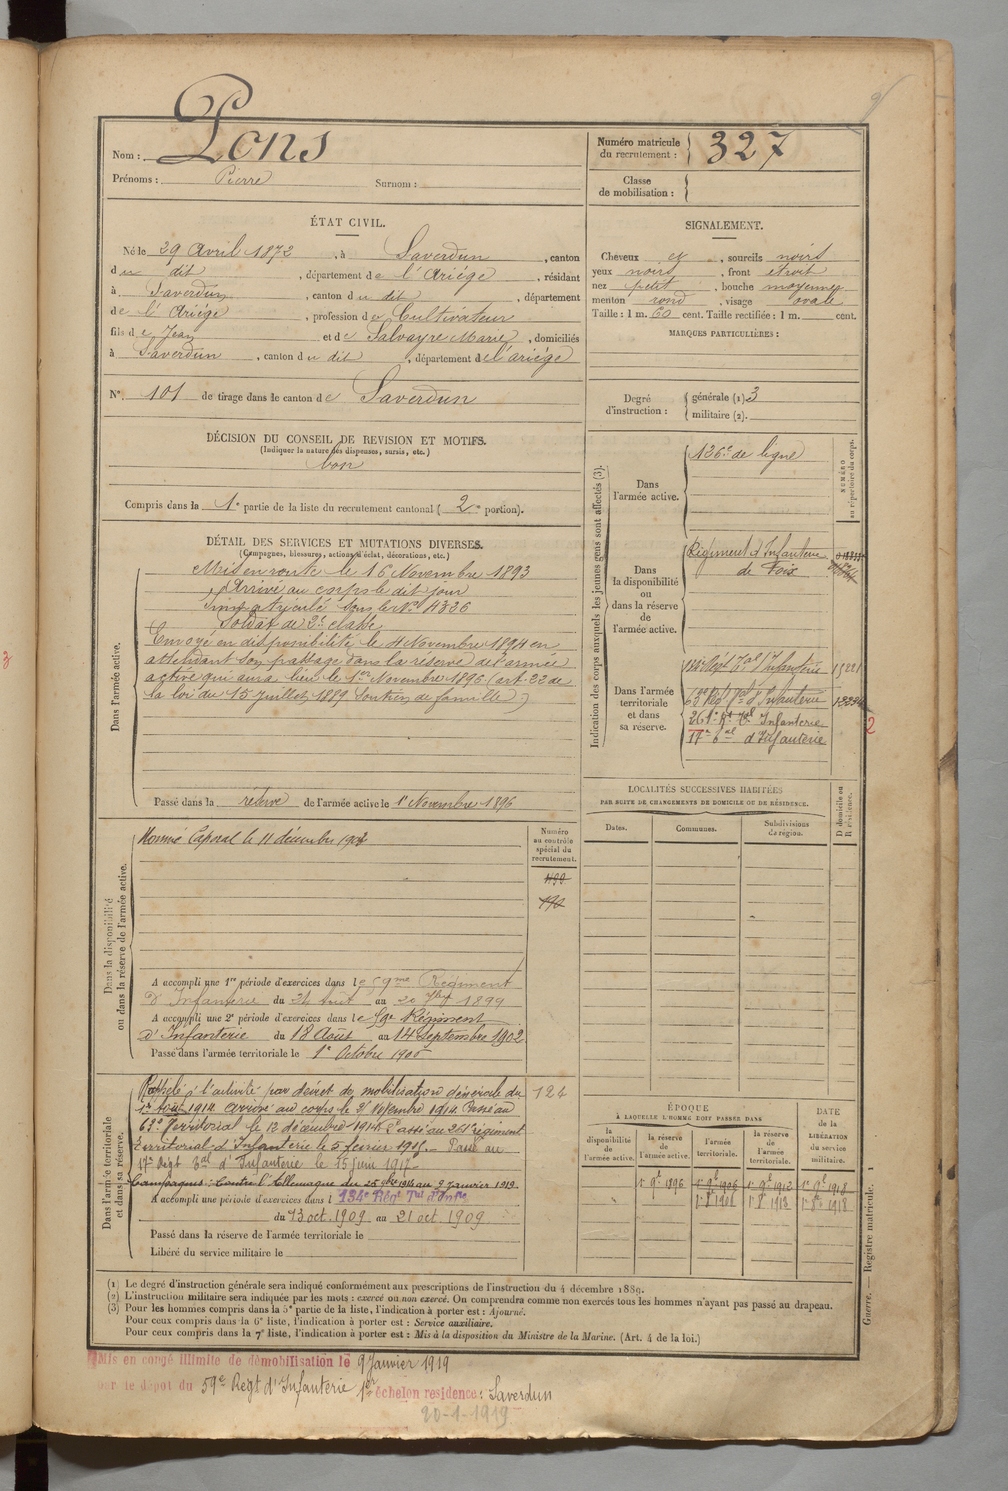 Nom : Pons
Prénoms : Pierre Surnom :
ÉTAT CIVIL.
Né le 29 Avril 1872, à Saverdun, canton
du dit, département de l'Ariége, résidant
à Saverdun, canton du dit, département
de l'Ariége, profession de Cultivateur
fils de Jean et de Salvayre Marie, domiciliés
à Saverdun, canton du dit, département de l'ariége
N°. 101 de tirage dans le canton de Saverdun
DÉCISION DU CONSEIL DE REVISION ET MOTIFS.
(Indiquer la nature des dispenses, sursis, etc.)
bon
Compris dans la 1e partie de la liste du recrutement cantonal (2e portion).
DÉTAIL DES SERVICES ET MUTATIONS DIVERSES.
(Campagnes, blessures, actions d'éclat, décorations, etc.)
Dans l'armée active.
Mis en route le 16 Novembre 1893
Arrivé au corps le dit jour
Immatriculé sous le N° 4336
Soldat de 2e classe
Envoyé en disponibilité le 4 Novembre 1894 en
attendant son passage dans la réserve de l'armée
active qui aura lieu le 1er Novembre 1896 (art. 22 de
la loi du 15 Juillet 1889 Soutien de famille)
Passé dans la réserve de l'armée active le 1r Novembre 1896
Dans la disponibilité
ou dans la réserve de l'armée active.
Nommé Caporal le 11 décembre
Numéro
au contrôle
spécial du
recrutement.
A accompli une 1re période d'exercices dans le 59me Régiment
d'Infanterie du 24 Août au 20 7bre 1899
A accompli une 2e période d'exercices dans le 59e Régiment
d'Infanterie du 18 Août au 14 Septembre 1902
Passé dans l'armée territoriale le 1r Octobre 1906
Dans l'armée territoriale
et dans sa réserve.
124
Rappelé à l'activité par décret de mobilisation générale du
1er Août 1914 arrivé au corps le Septembre 1914. Passé au
63e Territorial le 12 décembre 1914. Passé au 261e régiment
territorial d'Infanterie le 5 février 1915. — Passé au
17 Régt Tal d'Infanterie le 15 juin 1917
Campagnes : Contre l'Allemagne du 25 1914 au 9 Janvier 1919
A accompli une période d'exercices dans l 134e Régt Tal d'Infie
du 13 oct. 1909 au 21 oct. 1909
Passé dans la réserve de l'armée territoriale le
Libéré du service militaire le
Numéro matricule
du recrutement : 327
Classe
de mobilisation :
SIGNALEMENT.
Cheveux et, sourcils noirs
yeux noirs, front étroit
nez petit, bouche moyenne
menton rond, visage ovale
Taille : 1 m. 60 cent. Taille rectifiée : 1 m. cent.
MARQUES PARTICULIÈRES :
Degré
d'instruction :
générale (1) 3
militaire (2).
Indication des corps auxquels les jeunes gens sont affectés (3).
NUMÉRO
au répertoire du corps.
Dans
l'armée active.
136e de ligne
Dans
la disponibilité
ou
dans la réserve
de
l'armée active.
Régiment d'Infanterie
de Foix
Dans l'armée
territoriale
et dans
sa réserve.
134e Régt Tal d'Infanterie
63e Régt Tal d'Infanterie
261e Rt Tal Infanterie
17e Tal d'Infanterie
2
LOCALITÉS SUCCESSIVES HABITÉES
PAR SUITE DE CHANGEMENTS DE DOMICILE OU DE RÉSIDENCE.
Dates. Communes. Subdivisions
de région.
D domicile ou
R résidence.
ÉPOQUE
À LAQUELLE L'HOMME DOIT PASSER DANS
la
disponibilité
de
l'armée active.
la réserve
de
l'armée active.
l'armée
territoriale.
la réserve
de
l'armée
territoriale.
DATE
de la
LIBÉRATION
du service
militaire.
1r 9e 1896 1r 9e 1906 1r 9e 1912 1r 9e 1918
1r 8e 1906 1r 8e 1913 1r 8e 1918
Guerre. — Registre matricule. 1
(1) Le degré d'instruction générale sera indiqué conformément aux prescriptions de l'instruction du 4 décembre 1889.
(2) L'instruction militaire sera indiquée par les mots : exercé ou non exercé. On comprendra comme non exercés tous les hommes n'ayant pas passé au drapeau.
(3) Pour les hommes compris dans la 5e partie de la liste, l'indication à porter est : Ajourné.
Pour ceux compris dans la 6e liste, l'indication à porter est : Service auxiliaire.
Pour ceux compris dans la 7e liste, l'indication à porter est : Mis à la disposition du Ministre de la Marine. (Art. 4 de la loi.)
Mis en congé illimité de démobilisation le 9 Janvier 1919
par le dépôt du 59e Régt d'Infanterie 1er échelon résidence : Saverdun
20-1-1919